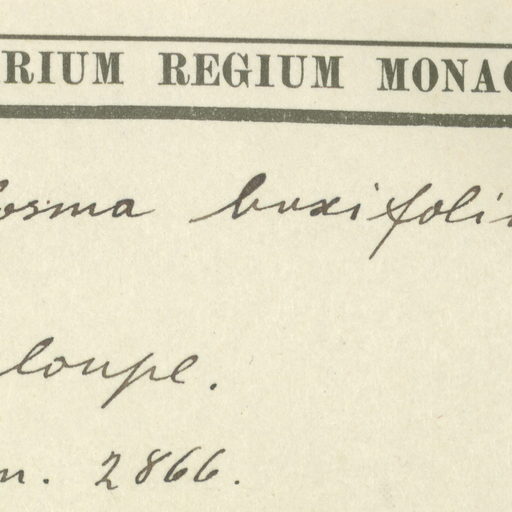 RIUM REGIUM MONAC
osma buxifoli
loupe.
n. 2866.